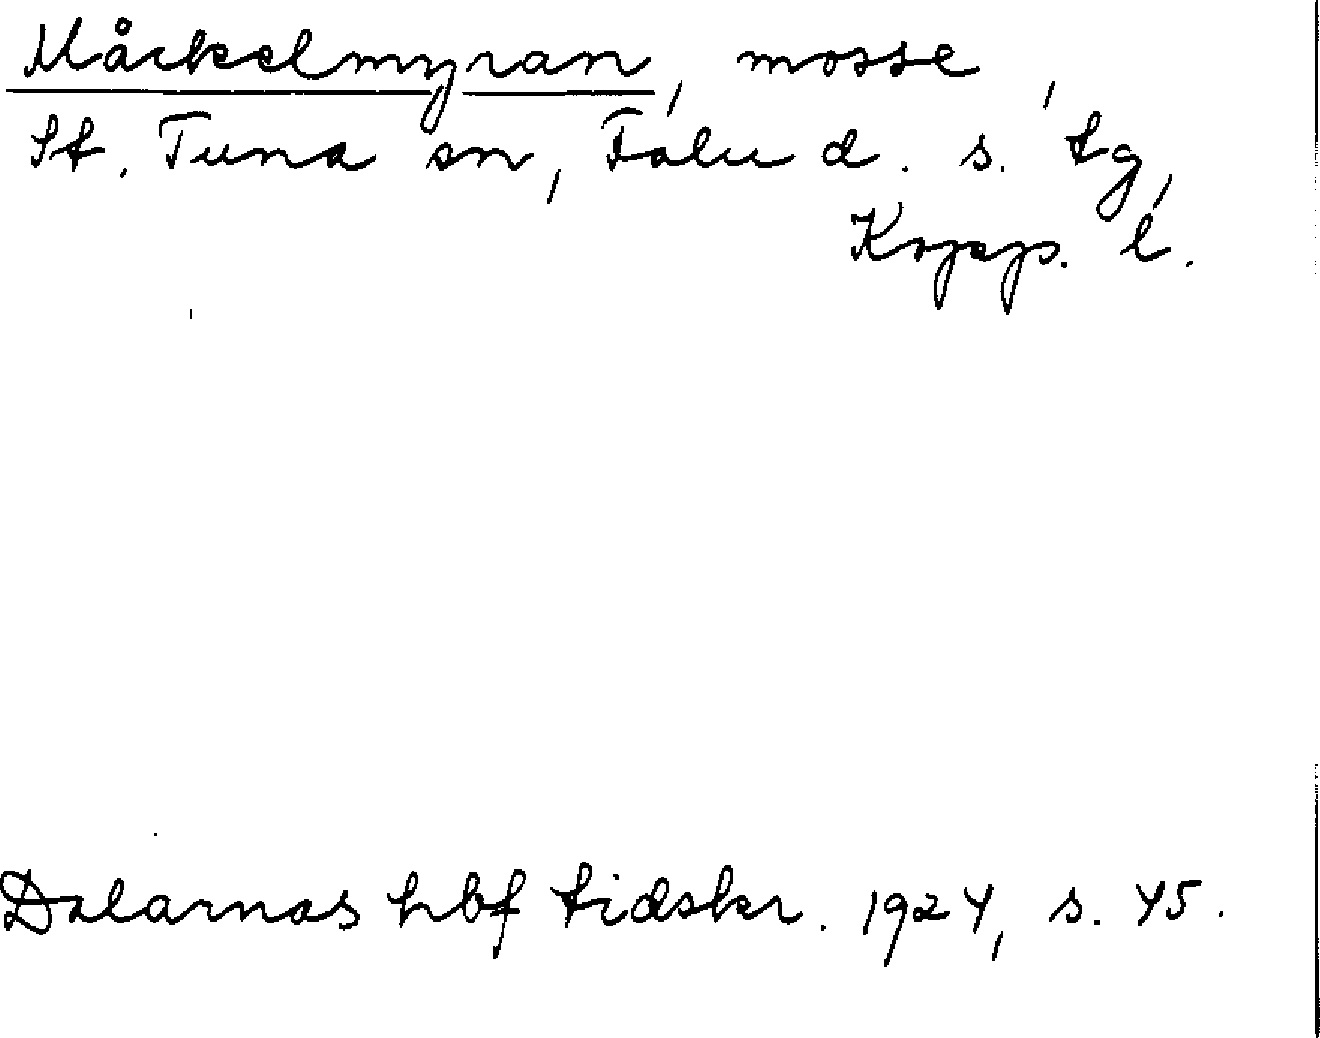 Måckelmyran, mosse,
St. Tuna sn, Falu d. s. tg,
Kopp. l.
Dalarnas hbf tidskr. 1924, s. 45.